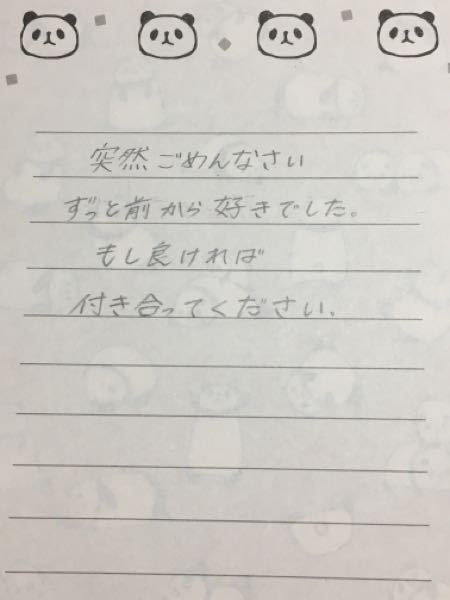 突然ごめんなさい
ずっと前から好きでした。
もし良ければ
付き合ってください。